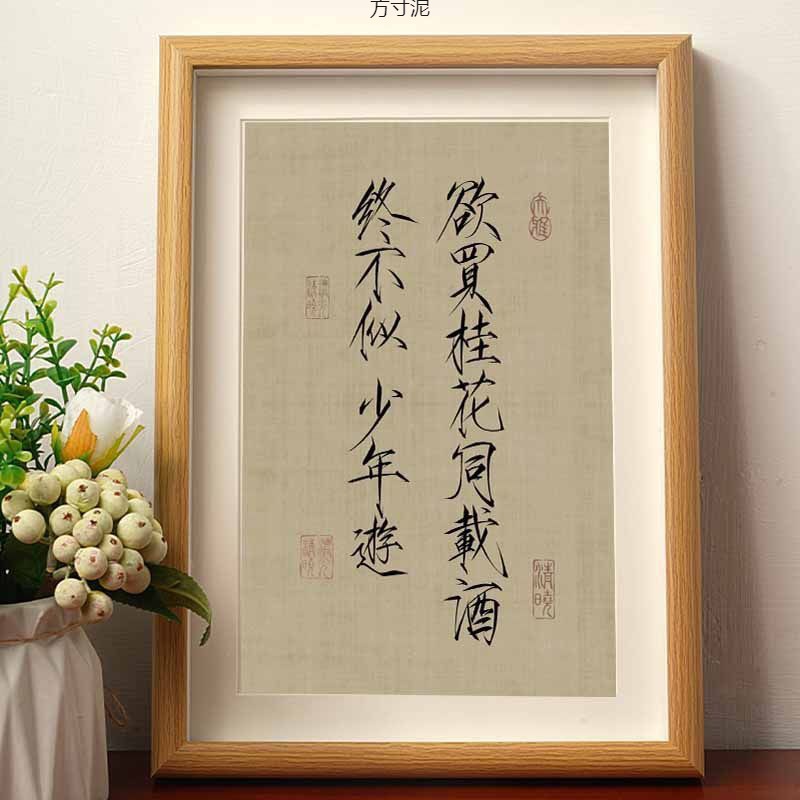 方寸泥
欲買桂花同載酒
終不似少年遊
清曉